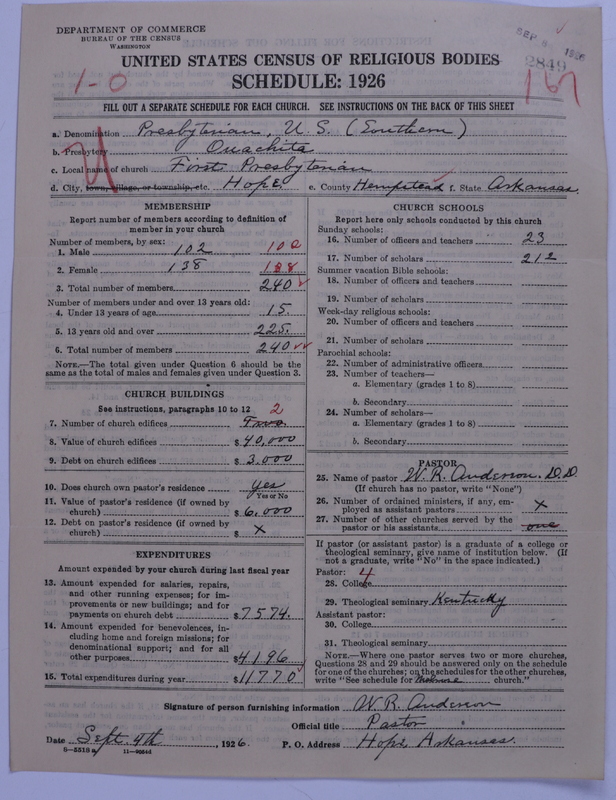 DEPARTMENT OF COMMERCE
BUREAU OF THE CENSUS
WASHINGTON
SEP 8 1926
2849
UNITED STATES CENSUS OF RELIGIOUS BODIES
SCHEDULE: 1926
1-0
167
FILL OUT A SEPARATE SCHEDULE FOR EACH CHURCH. SEE INSTRUCTIONS ON THE BACK OF THIS SHEET
a. Denomination Presbyterian, U.S. (Southern)
b. Presbytery Ouachita
c. Local name of church First Presbyterian
d. City, town, village, or township, etc. Hope. e. County Hempstead f. State Arkansas.
MEMBERSHIP
Report number of members according to definition of
member in your church
Number of members, by sex:
1. Male 102
2. Female 138
3. Total number of members 240
Number of members under and over 13 years old:
4. Under 13 years of age 15.
5. 13 years old and over 225.
6. Total number of members 240
NOTE.—The total given under Question 6 should be
same as the total of males and females given under Question 3.
CHURCH BUILDINGS
See instructions, paragraphs 10 to 12 2
7. Number of church edifices Two
8. Value of church edifices $ 40,000
9. Debt on church edifices $ 3.000
10. Does church own pastor's residence yes
Yes or No
11. Value of pastor's residence (if owned by
church) $ 6,000
12. Debt on pastor's residence (if owned by
church) $ x
EXPENDITURES
Amount expended by your church during last fiscal year
13. Amount expended for salaries, repairs,
and other running expenses; for im-
provements or new buildings; and for
payments on church debt $ 7574.
14. Amount expended for benevolences, in-
cluding home and foreign missions; for
denominational support; and for all
other purposes $ 4196
15. Total expenditures during year $ 11770
CHURCH SCHOOLS
Report here only schools conducted by this church
Sunday schools:
16. Number of officers and teachers 23
17. Number of scholars 212
Summer vacation Bible schools:
18. Number of officers and teachers
19. Number of scholars
Week-day religious schools:
20. Number of officers and teachers
21. Number of scholars
Parochial schools:
22. Number of administrative officers
23. Number of teachers—
a. Elementary (grades 1 to 8)
b. Secondary
24. Number of scholars—
a. Elementary (grades 1 to 8)
b. Secondary
PASTOR
25. Name of pastor W. R. Anderson. D.D.
(If church has no pastor, write "None")
26. Number of ordained ministers, if any, em-
ployed as assistant pastors x
27. Number of other churches served by the
pastor or his assistants one
If pastor (or assistant pastor) is a graduate of a college or
theological seminary, give name of institution below. (If
not a graduate, write "No" in the space indicated.)
Pastor: 4
28. College
29. Theological seminary Kentucky
Assistant pastor:
30. College
31. Theological seminary
NOTE.—Where one pastor serves two or more churches,
Questions 28 and 29 should be answered only on the schedule
for one of the churches; on the schedules for the other churches,
write "See schedule for church."
Signature of person furnishing information W. R. Anderson
Official title Pastor
Date Sept. 4th, 1926. P. O. Address Hope, Arkansas.